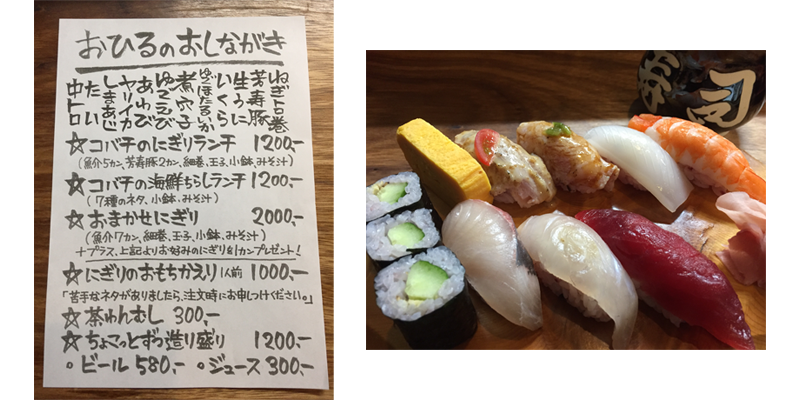 おひるのおしながき
ねぎトロ巻
芳寿豚
生うに
いくら
ゆでほたるいか
煮穴子
ゆでえび
あわび
ヤリイカ
しまあじ
たい
中トロ
☆コバチのにぎりランチ 1200,-
(魚介5カン、芳寿豚2カン、細巻、玉子、小鉢、みそ汁)
☆コバチの海鮮ちらしランチ 1200,-
(7種のネタ、小鉢、みそ汁)
☆おまかせにぎり 2000,-
(魚介7カン、細巻、玉子、小鉢、みそ汁)
+プラス、上記よりお好みのにぎり1カンプレゼント!
☆にぎりのおもちかえり 1人前 1000,-
「苦手なネタがありましたら、注文時にお申しつけください。」
☆茶わんむし 300,-
☆ちょこっとずつ造り盛り 1200,-
・ビール 580,- ・ジュース 300,-
寿司